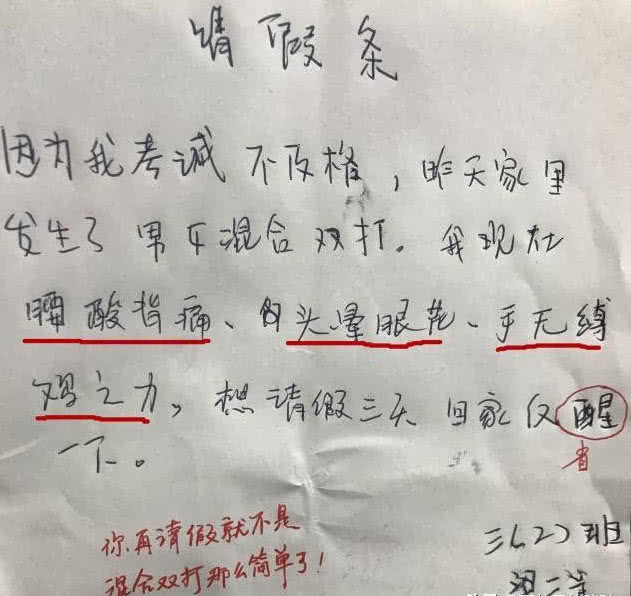 请假条
因为我考试不及格，昨天家里
发生了男女混合双打。我现在
腰酸背痛、头晕眼花、手无缚
鸡之力，想请假三天回家反醒
一下。
省
你再请假就不是
混合双打那么简单了！
三（2）班